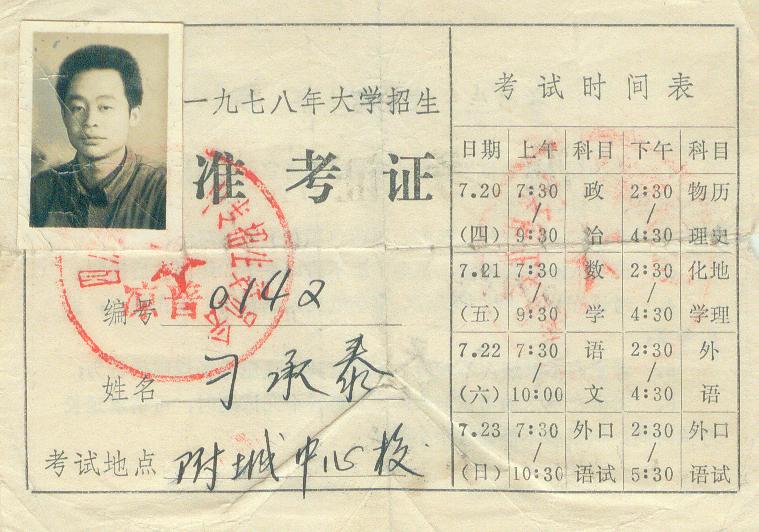 一九七八年大学招生
准考证
编号 0142
姓名 刁承泰
考试地点 附城中心校
考试时间表
日期 上午 科目 下午 科目
7.20 7:30 政 2:30 物历
/ /
(四) 9:30 治 4:30 理史
7.21 7:30 数 2:30 化地
/ /
(五) 9:30 学 4:30 学理
7.22 7:30 语 2:30 外
/ /
(六) 10:00 文 4:30 语
7.23 7:30 外口 2:30 外口
/ /
(日) 10:30 语试 5:30 语试